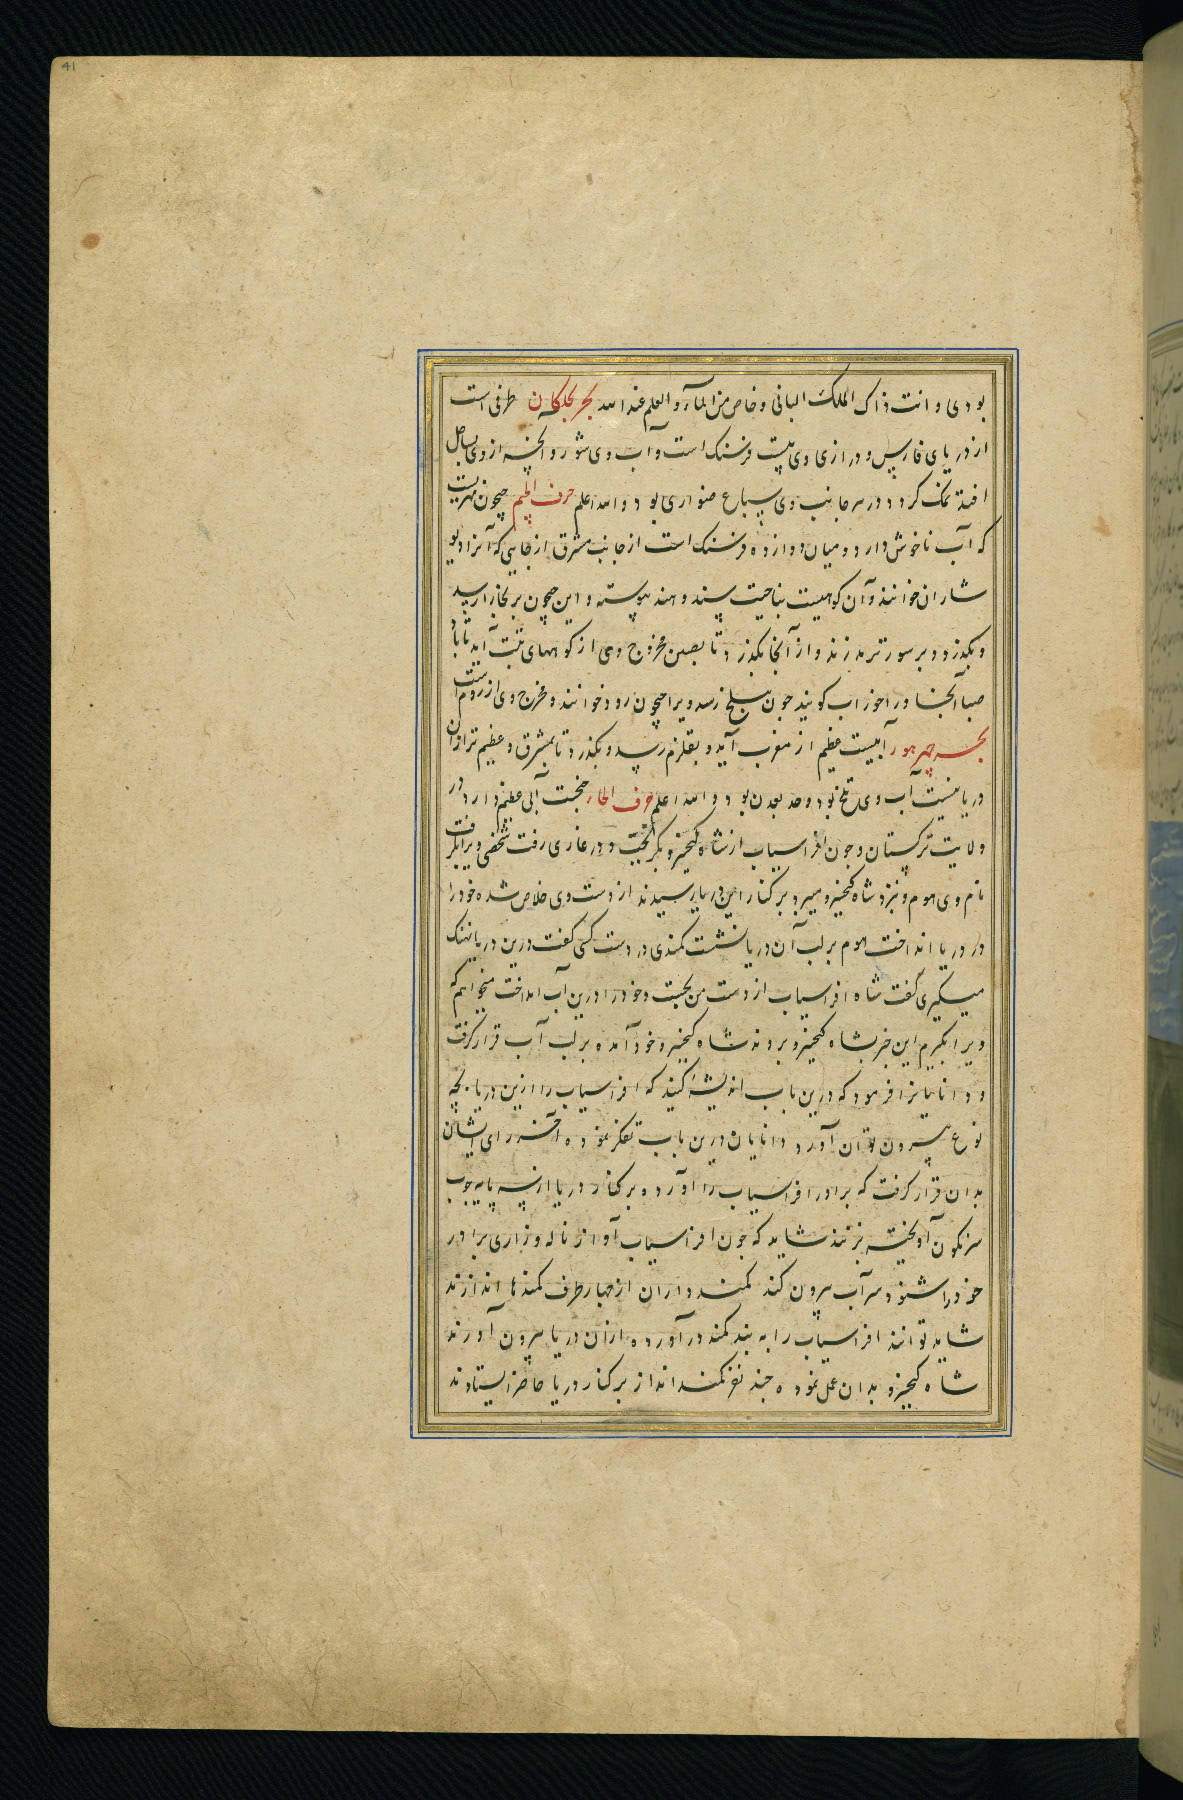 41
بودی و انت ذاک الملک البانی و خاص من المآء و العلم عند الله بحر بجلکان طرفی است
از دریای فارس و درازی وی بیست فرسنک است و آب وی شور و آنچه از وی بساحل
افتد نمک کردد و در هر جانب وی سباع بود و الله اعلم حرف الجیم جیحون نهریست
که آب ناخوش دارد و میان دوازده فرسنک است از جانب مشرق از جایی که آنرا دیو
شاران خوانند و آن کوهیست بناحیت سند و هند پیوسته و این جیحون بر بخارا رسد
و بکذرد و بر سور ترمد زند و از آنجا بکذرد تا بصین مخرج وی از کوههای تبت آید تا با
صبا آنجا و را خوزاب کویند جون ببلخ رسد ویرا جیحون رود خوانند و مخرج وی از روم است
بحر چهرهور آبیست عظیم از مغرب آید و بقلزم رسد و بکذرد تا بمشرق و عظیم تر از آن
دریا نیست آب وی تلخ بود و حد بعدن بود و الله اعلم حرف الخاء خنجست آبی عظیم دارد در
ولایت ترکستان و جون افراسیاب از شاه کیخسرو بکریخت و در غاری رفت شخصی ویرا بکرفت
نام وی هوم و نزد شاه کیخسرو میبرد بر کنار این دریا رسیدند از دست وی خلاص شده خود را
در دریا انداخت هوم بر لب آن دریا نشست کمندی در دست کسی کفت درین دریا نهنک
میکیری کفت شاه افراسیاب از دست من بجست و خود را درین آب انداخت میخواهم که
ویرا بکیرم این خبر بشاه کیخسرو بردند شاه کیخسرو خود آمده بر لب آب قرار کرفت
و دانایانرا فرمود که درین باب اندیشه کنید که افراسیاب را ازین دریا بچه
نوع بیرون توان آورد دانایان درین باب تفکر نموده آخر رای ایشان
بدان قرار کرفت که برادر افراسیاب را آورد و بر کنار دریا از سه پایه چوب
سرنکون آویخته بزنند شاید که جون افراسیاب آواز ناله و زاری برادر
خود را شنود سر آب بیرون کند کمند داران از چهار طرف کمندها اندازند
شاید توانند افراسیاب را به بند کمند درآورده از آن دریا بیرون آورند
شاه کیخسرو بدان عمل نموده چند نفر کمند انداز بر کنار دریا حاضر ایستادند